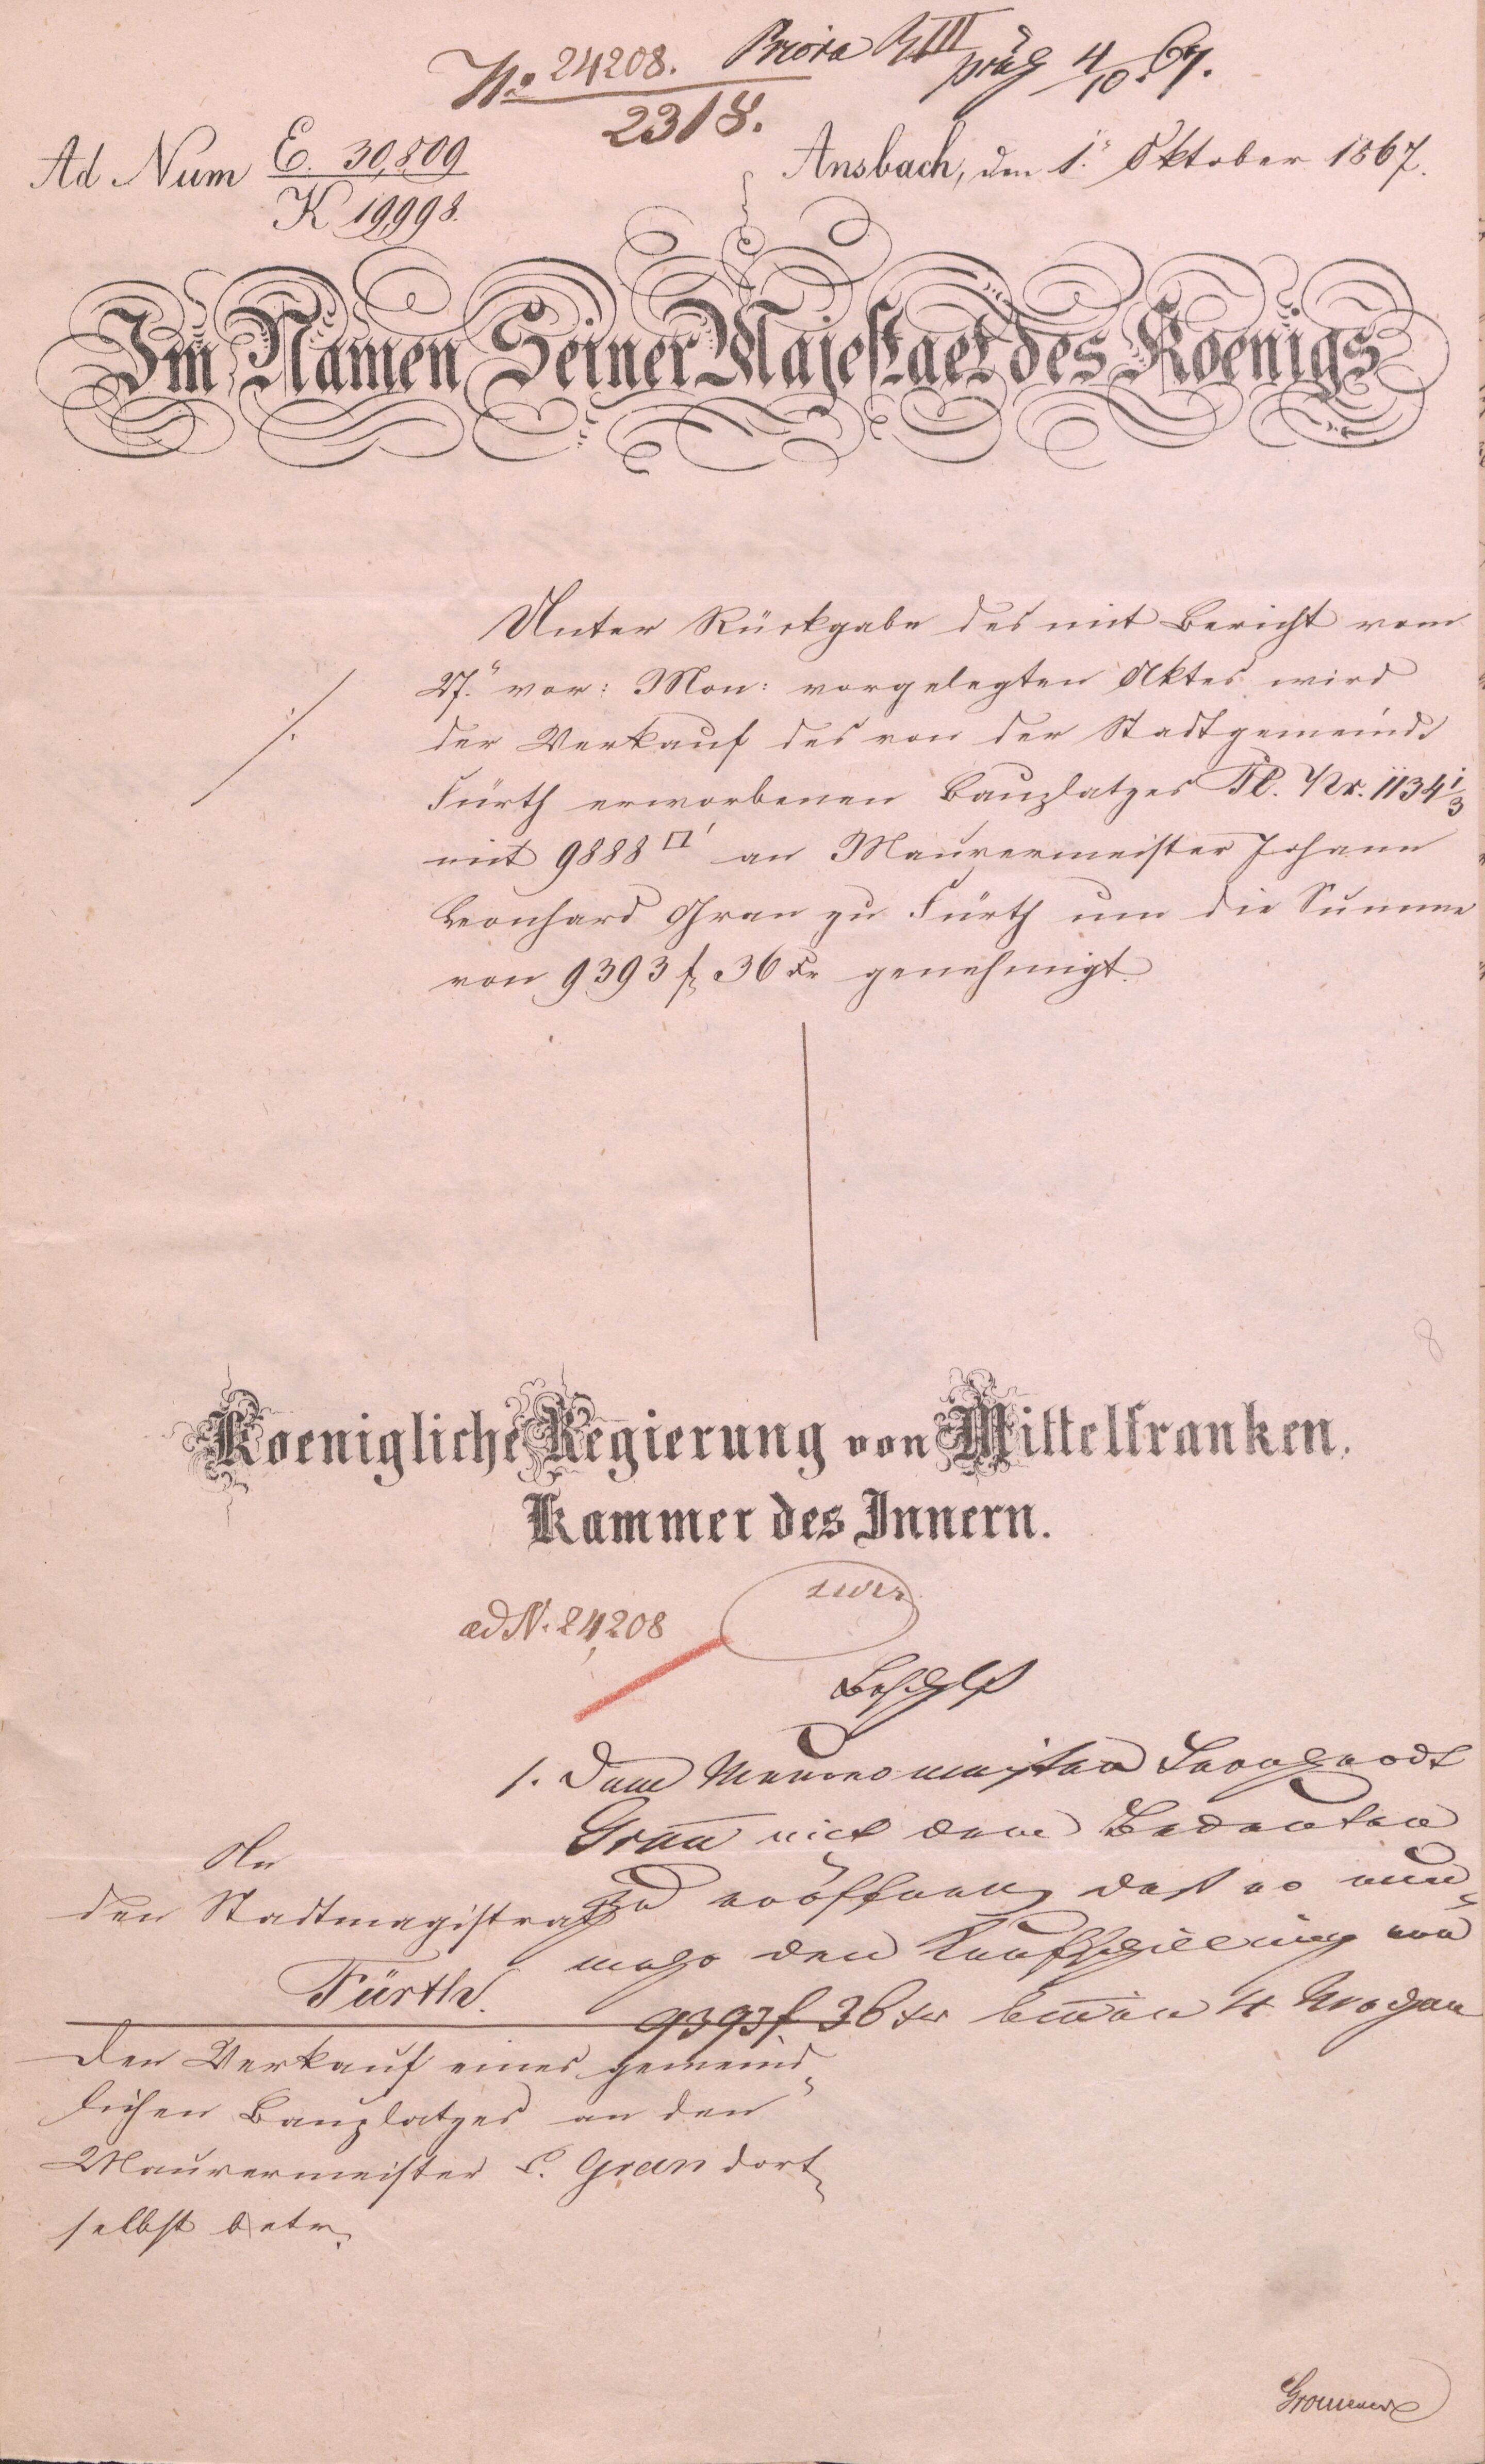 No 24208. Priora R III präs 4/10. 67.
2318.
Ad Num E. 30,809
K 19,998.
Ansbach, den 1." Oktober 1867.
Im Namen Seiner Majestaet des Koenigs
Unter Rückgabe des mit Bericht vom
27." vor: Mon: vorgelegten Aktes wird
der Verkauf des von der Stadtgemeinde
Fürth erworbenen Bauplatzes Pl. Nr. 1134 1/3
mit 9888 □' an Maurermeister Johann
Leonhard Gran zu Fürth um die Summe
von 9393 f 36 Xr genehmigt.
Koenigliche Regierung von Mittelfranken,
Kammer des Innern.
ad N. 24,208
Beschluß
1. Dem Maurermeister Leonhardt
Grau mit dem Bedeuten
zu eröffnen, daß er nun-
mehr den Kaufschilling von
9393 f. 36 xr binnen 4 Wochen
An
den Stadtmagistrat
Fürth.
Den Verkauf eines gemeind-
lichen Bauplatzes an den
Maurermeister L. Gran dort-
selbst betr.